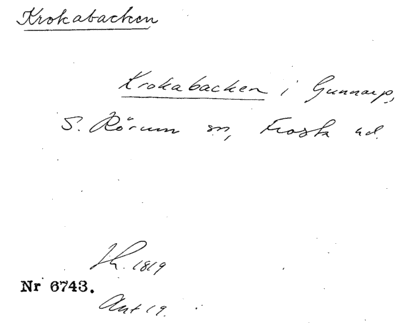 Krokabacken
Krokabacken i Gunnarp,
S. Rörum sn, Frosta hd.
Sk. 1819
Nr 6743.
Ant 19.